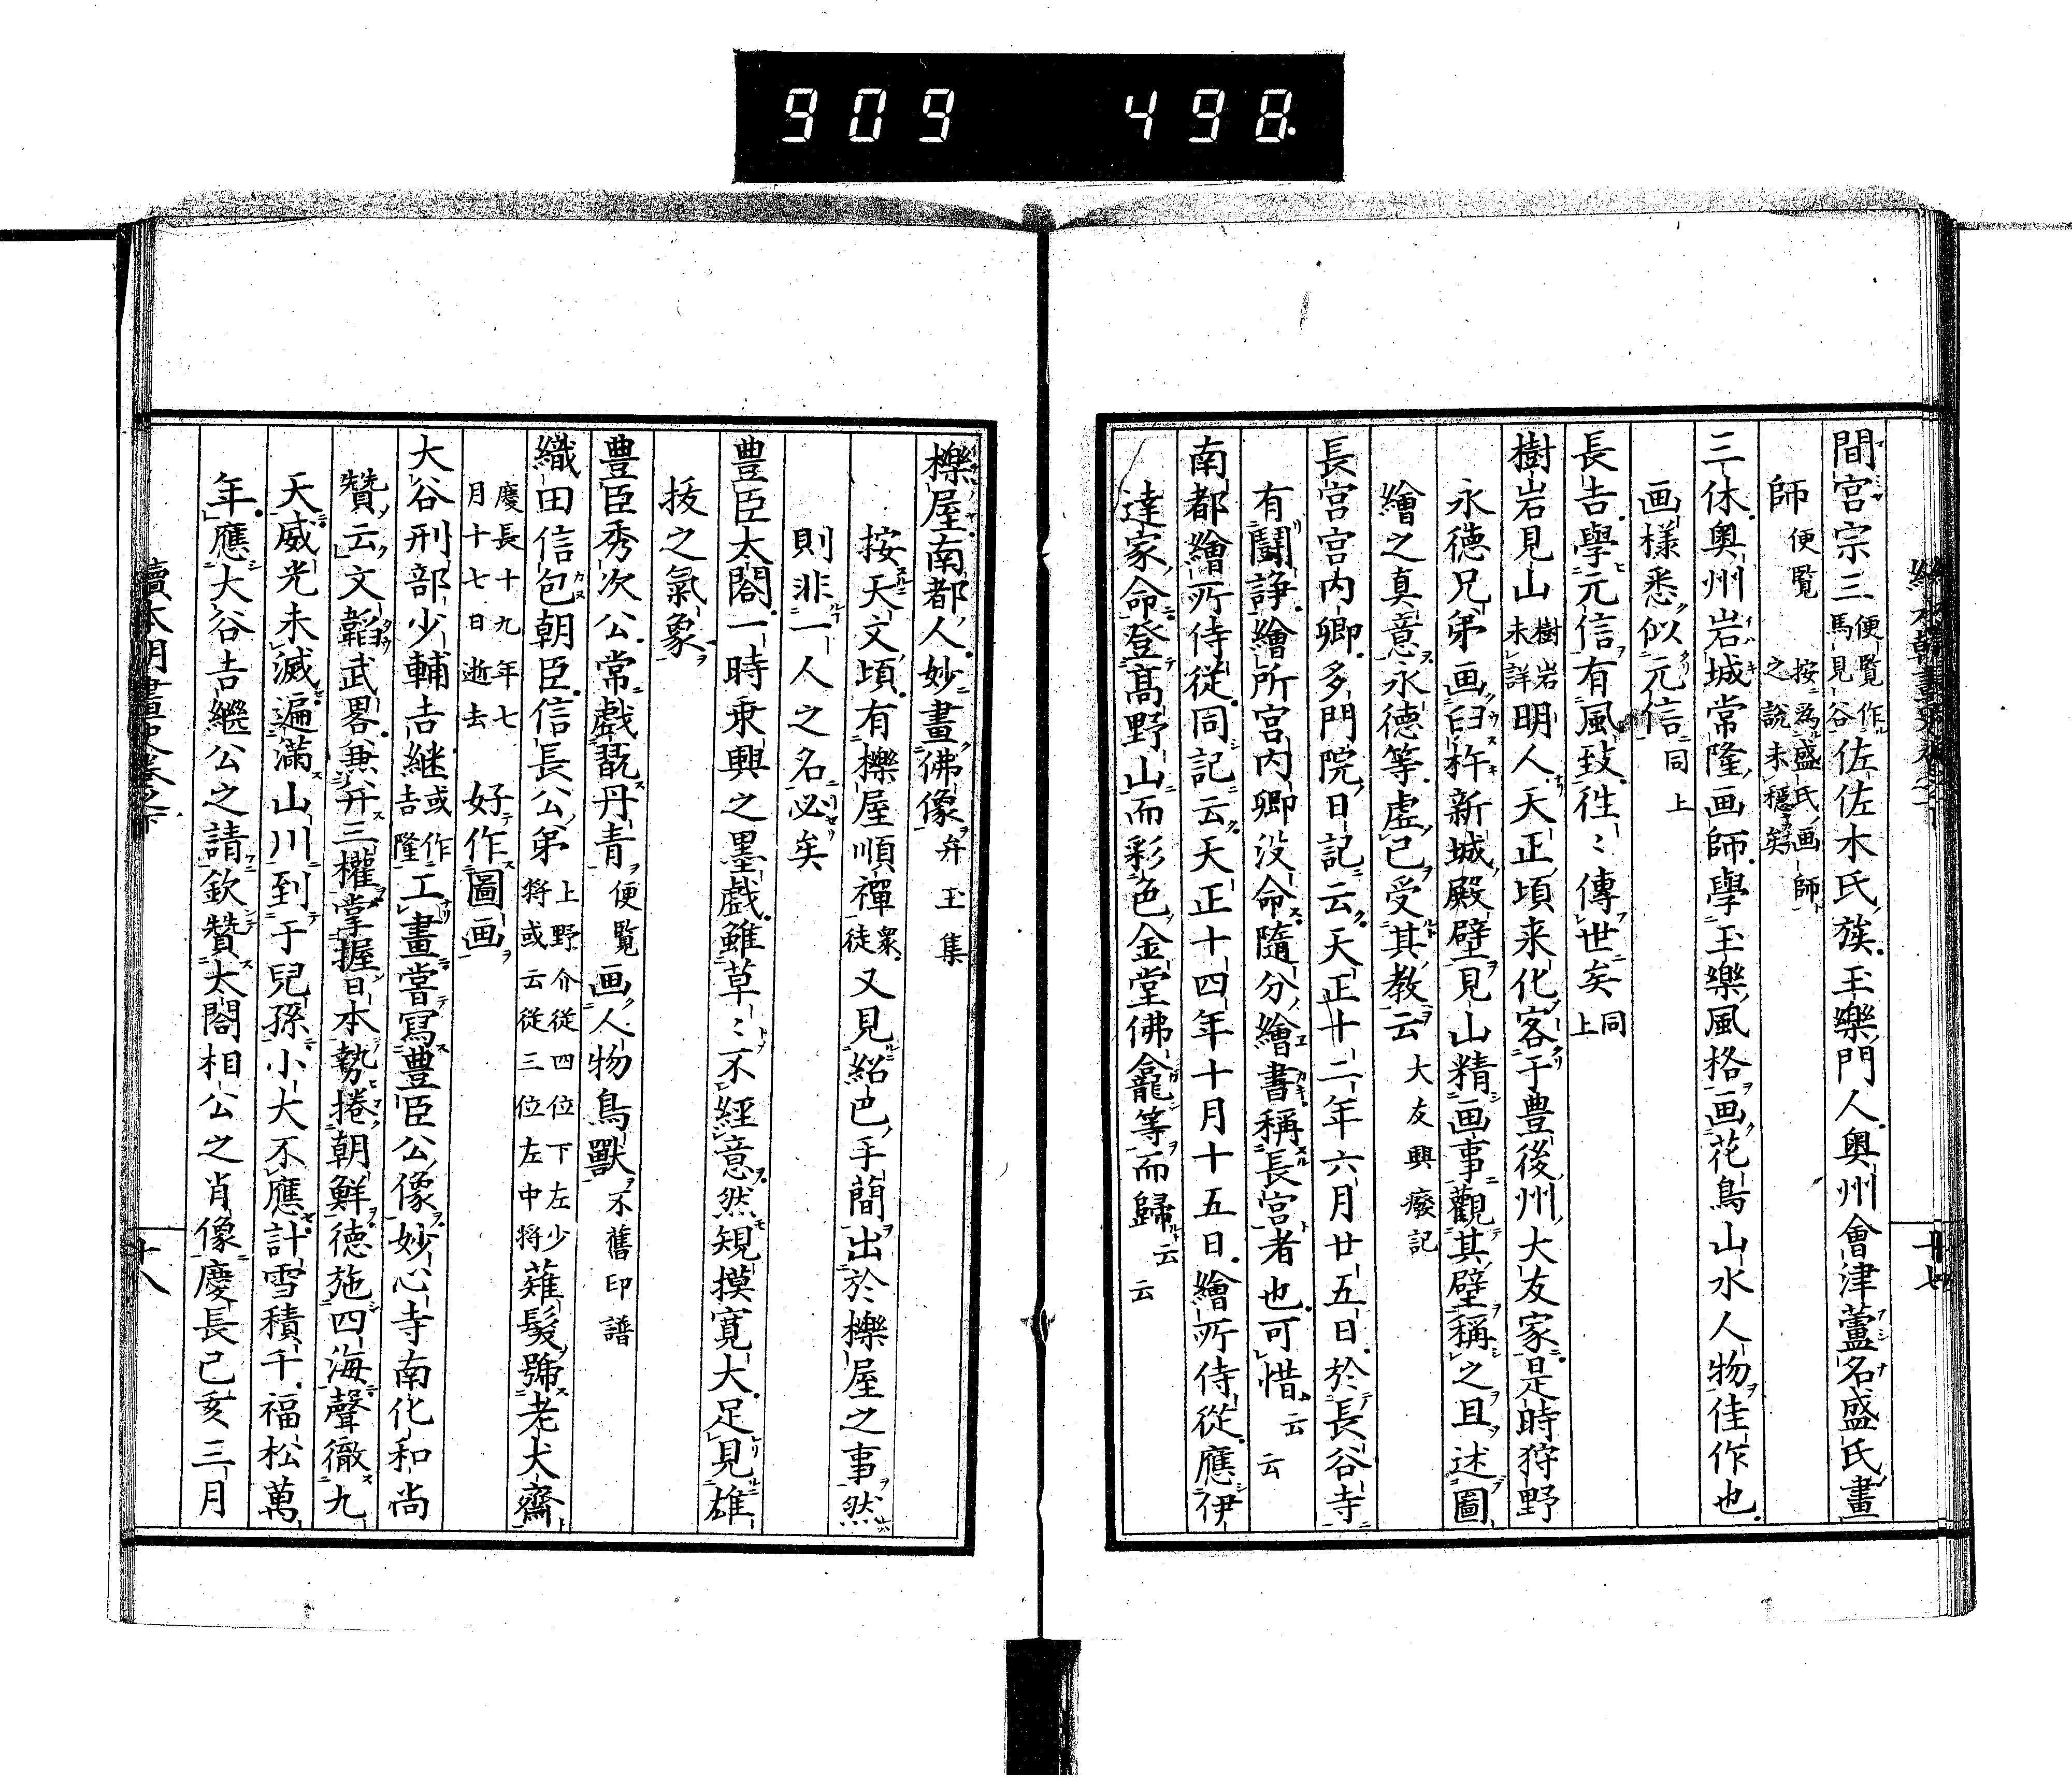 909 498.
間宮宗三便覧作馬見谷佐佐木氏族玉樂門人奥州會津蘆名盛氏畫
師便覧按爲盛氏画師之說未穩矣
三休奥州岩城常隆画師學玉樂風格画花鳥山水人物佳作也
画樣悉似元信同上
長吉學元信有風致徃〻傳世矣同上
樹岩見山樹岩未詳明人天正頃来化客于豊後州大友家是時狩野
永徳兄弟画臼杵新城殿壁見山精画事觀其壁稱之且述圖
繪之真意永德等虚己受其教云大友興癈記
長宮宮内卿多門院日記云天正十二年六月廿五日於長谷寺
有鬪諍繪所宮内卿没命隨分繪書稱長宮者也可惜云云
南都繪所侍從同記云天正十四年十月十五日繪所侍從應伊
達家命登髙野山而彩色金堂佛龕等而歸云云
十七
櫟屋南都人妙畫佛像弁玉集
按天文頃有櫟屋順禪衆徒又見紹巴手簡出於櫟屋之事然
則非一人之名必矣
豊臣太閤一時乗興之墨戲雖草〻不經意然規摸寛大足見雄
拔之氣象
豊臣秀次公常戲翫丹青便覧画人物鳥獸不舊印譜
織田信包朝臣信長公弟上野介從四位下左少将或云從三位左中将薙髪號老犬齋
慶長十九年七月十七日逝去好作圖画
大谷刑部少輔吉継或作吉隆工畫嘗寫豊臣公像妙心寺南化和尚
贊云文韜武畧兼并三權掌握日本勢捲朝鮮德施四海聲徹九
天威光未滅遍滿山川到于兒孫小大不應計雪積千福松萬
年應大谷吉繼公之請欽贊太閤相公之肖像慶長己亥三月
續本朝畫史卷之下
十八